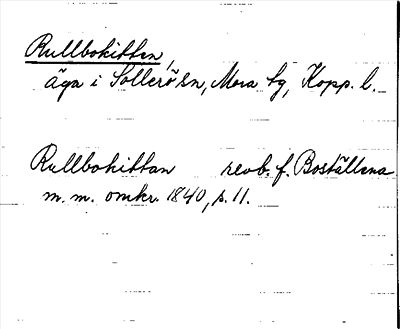 Rullbokittan,
äga i Sollerö sn, Mora tg, Kopp. l.
Rullbokittan revb. f. Boställena
m. m. omkr. 1840, p. 11.